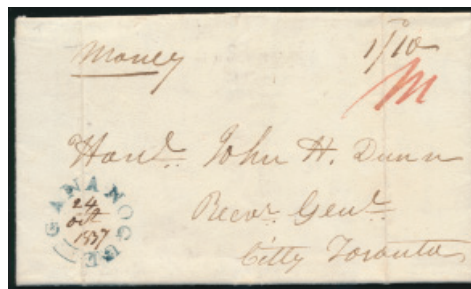 Money 1/10
M
Honl. John H. Dunn
Recvr Genl.
Citty Toronto
GANANOQUE
24
Oct
1837